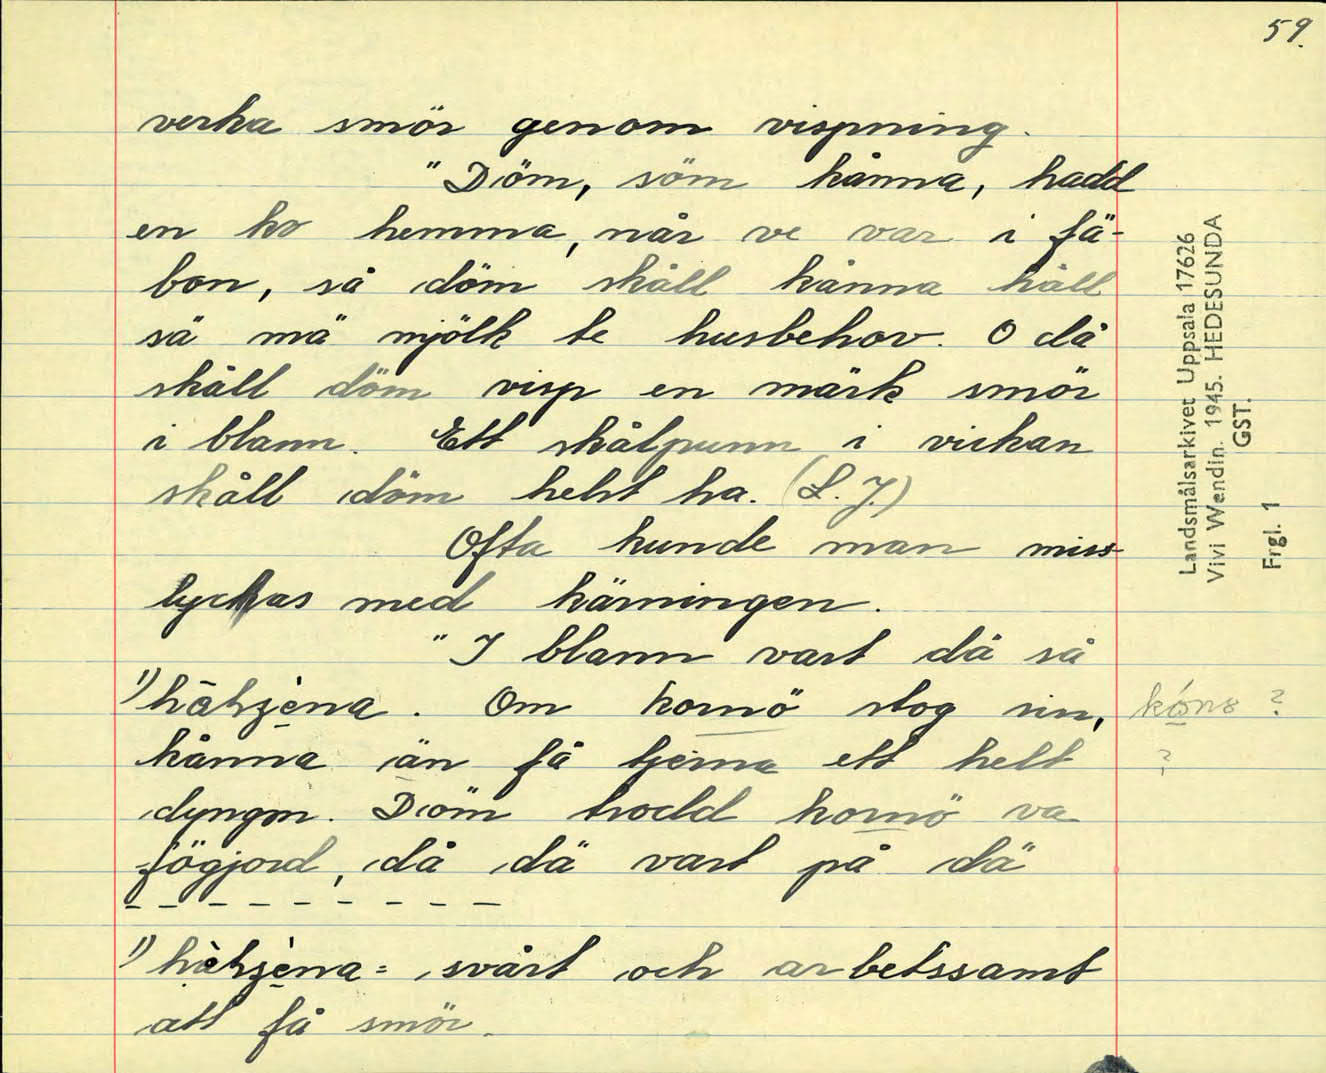 59.
verka smör genom vispning.
"Döm, söm kånna, hadd
en ko hemma, når ve var i fä-
bon, så döm skåll kånna håll
sä mä mjölk te husbehov. O då
skåll döm visp en märk smör
i blann. Ett skålpunn i vickan
skåll döm helst ha. (L. J.)
Ofta kunde man miss
lyckas med kärningen.
"I blann vart dä så
Om kornö stog sin,
kånna än få tjerna ett helt
dyngon. Döm trodd kornö va
fögjord, då dä vart på dä
- - - - - - - - - -
= svårt och arbetssamt
att få smör.
?
?
Landsmålsarkivet Uppsala 17626
Vivi Wendin. 1945. HEDESUNDA
GST.
Frgl. 1